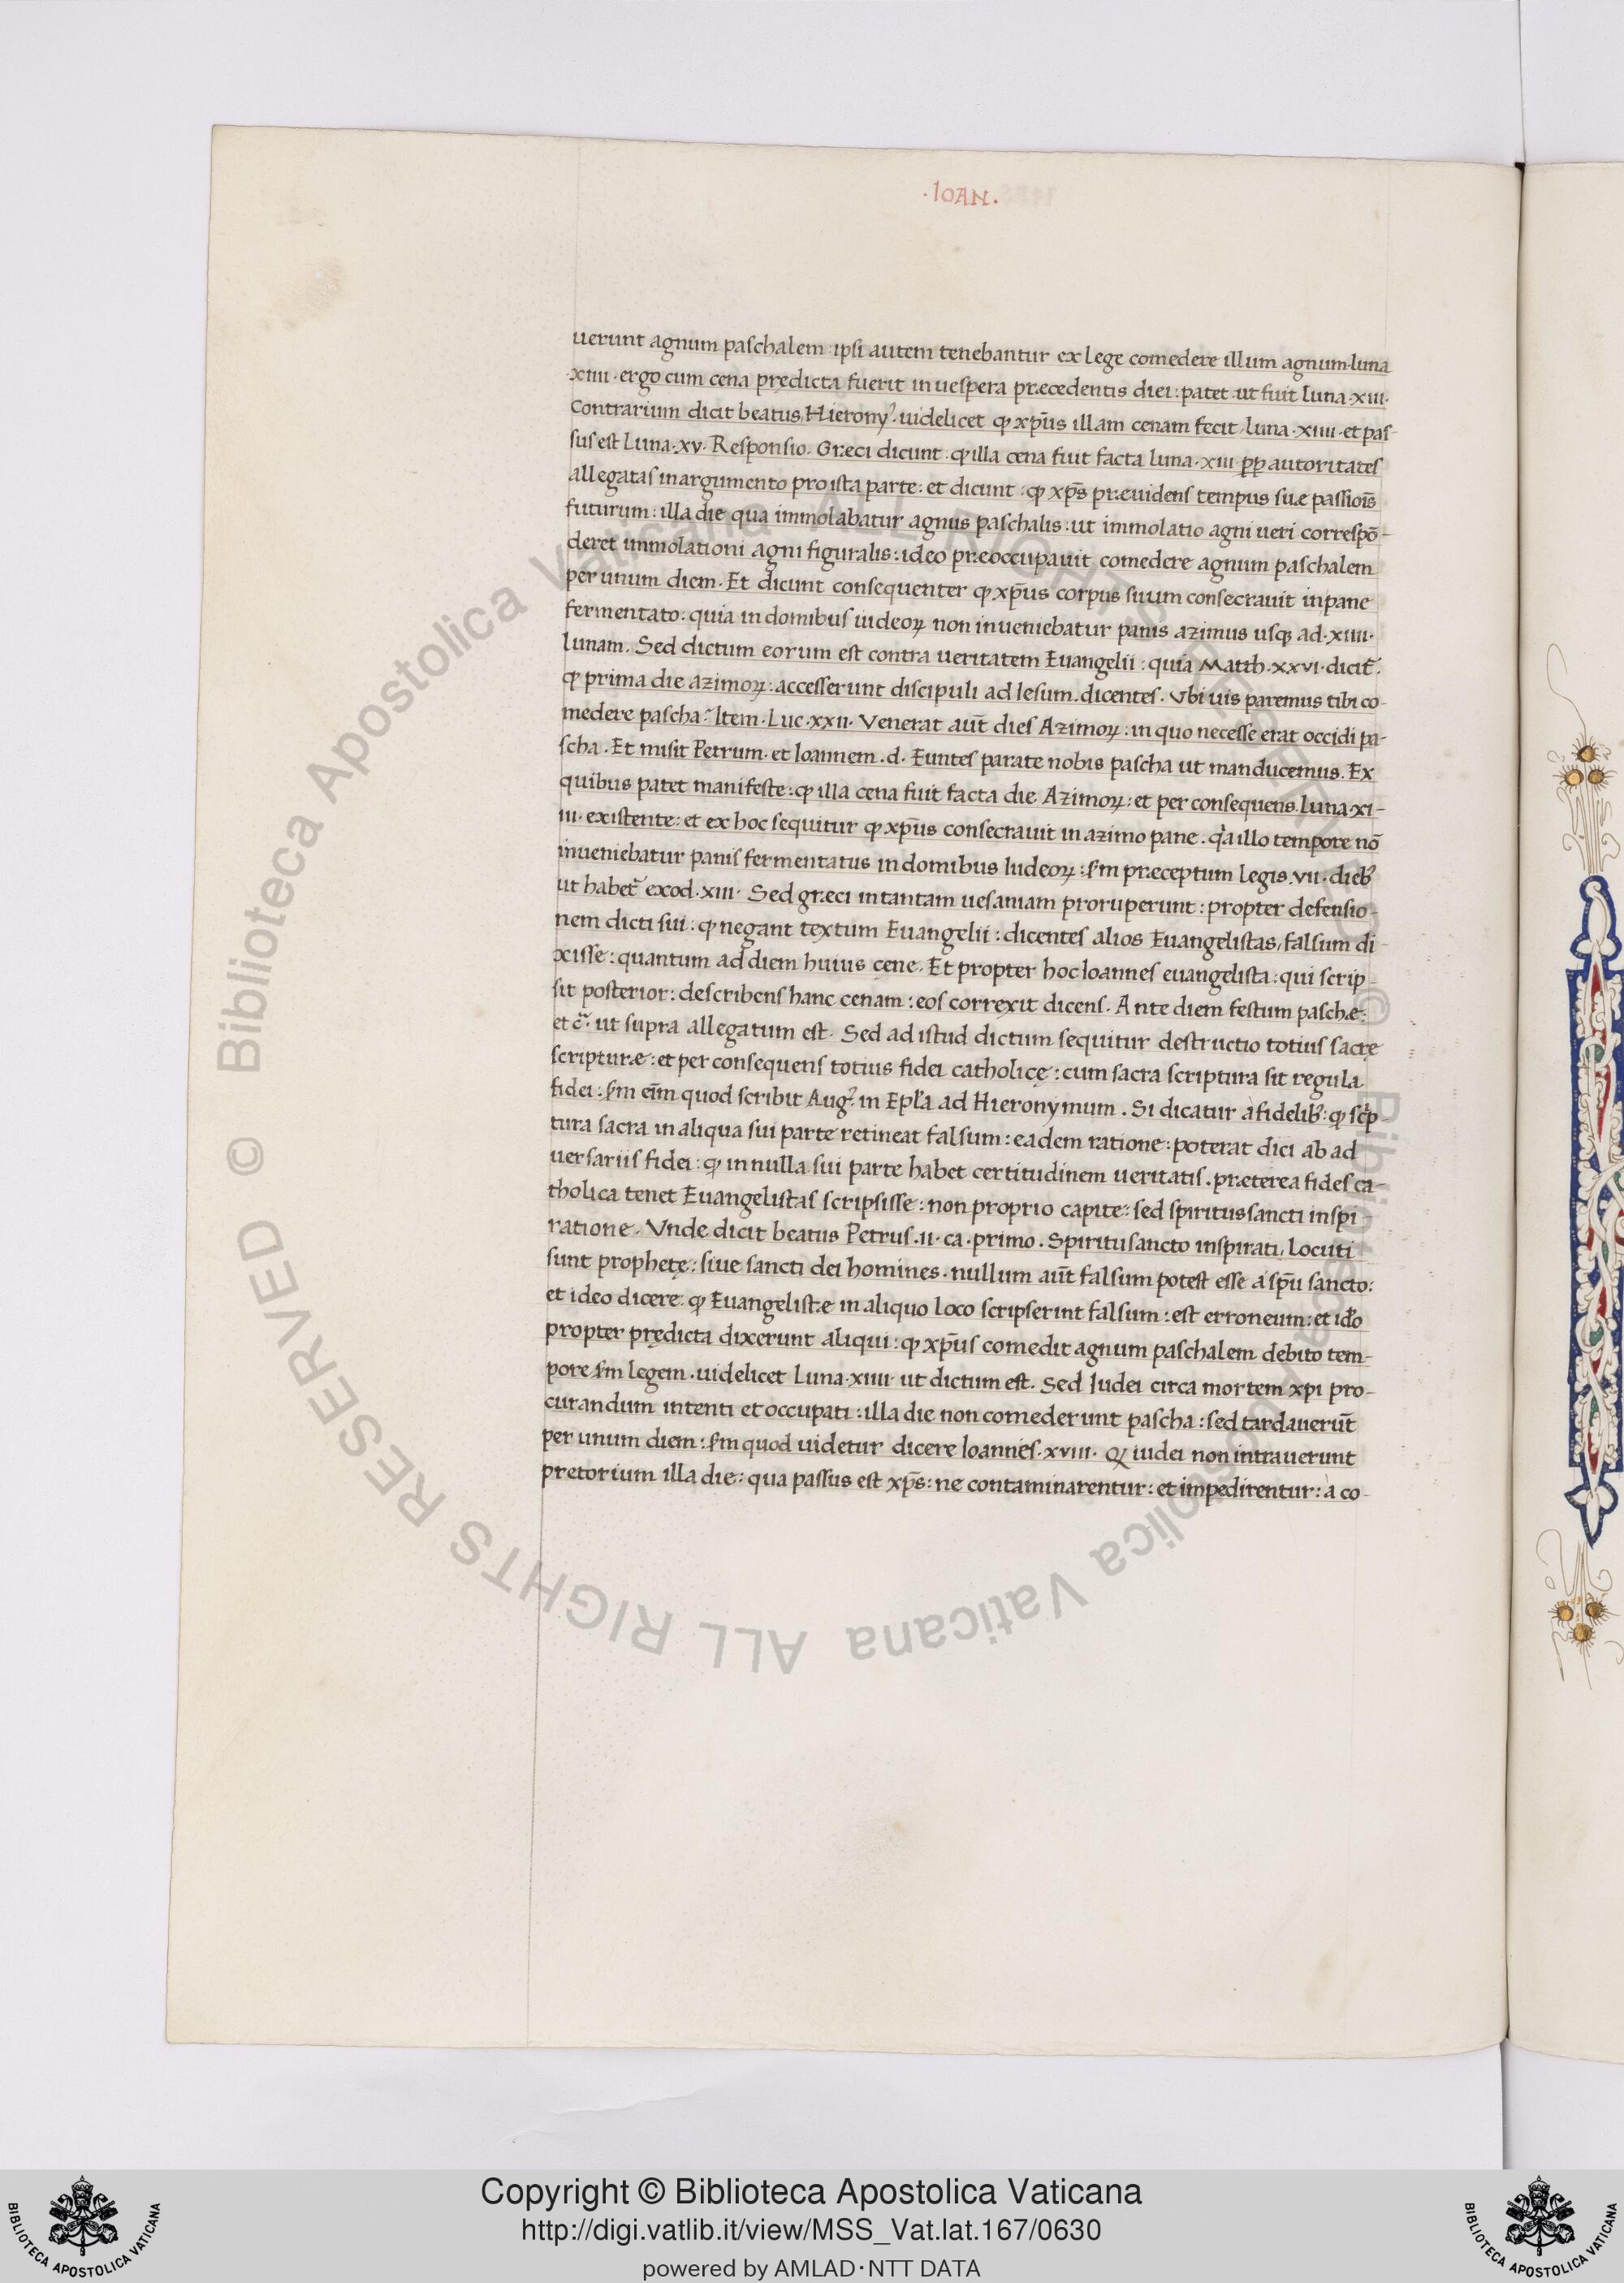 ·IOAN·
uerunt agnum paschalem: ipsi autem tenebantur ex lege comedere illum agnum·luna
·xiiii·ergo cum cena prędicta fuerit in uespera præcedentis diei: patet·ut fuit luna·xiii·
Contrarium dicit beatus Hierony⁹·uidelicet ꝙ xp̄us illam cenam fecit luna·xiiii·et pas-
sus est Luna·xv·Responsio·Græci dicunt:ꝙ illa cena fuit facta luna·xiii·ꝓꝑ autoritates
allegatas in argumento pro ista parte: et dicunt: ꝙ xp̄s præuidens tempus suæ passiōis
futurum: illa die qua immolabatur agnus paschalis: ut immolatio agni ueri correspō-
deret immolationi agni figuralis: ideo præoccupauit comedere agnum paschalem
per unum diem·Et dicunt consequenter ꝙ xp̄us corpus suum consecrauit in pane
fermentato: quia in domibus iudeoꝝ non inueniebatur panis azimus usqꝫ ad·xiiii·
lunam. Sed dictum eorum est contra ueritatem Euangelii: quia Matth·xxvi·dicit᷑
ꝙ prima die azimoꝝ: accesserunt discipuli ad Iesum. dicentes. Vbi uis paremus tibi co-
medere pascha? Item·Luc·xxii·Venerat aūt dies Azimoꝝ: in quo necesse erat occidi pa-
scha·Et misit Petrum·et Ioannem·d·Euntes parate nobis pascha ut manducemus. Ex
quibus patet manifeste: ꝙ illa cena fuit facta die Azimoꝝ: et per consequens. luna·xi-
iii·existente: et ex hoc sequitur ꝙ xp̄us consecrauit in azimo pane. qͣa illo tempore nō
inueniebatur panis fermentatus in domibus Iudeoꝝ: ẜm præceptum legis·vii·diebꝰ
ut habet᷑ exod·xiii· Sed græci in tantam uesaniam proruperunt: propter defensio-
nem dicti sui: ꝙ negant textum Euangelii: dicentes alios Euangelistas, falsum di-
xisse: quantum ad diem huius cęne. Et propter hoc Ioannes euangelista: qui scrip-
sit posterior: describens hanc cenam: eos correxit dicens. Ante diem festum paschæ:
et c̃· ut supra allegatum est. Sed ad istud dictum sequitur destructio totius sacrę
scripturæ: et per consequens totius fidei catholicę: cum sacra scriptura sit regula
fidei: ẜm eīm quod scribit Aug⁹ in Epl̃a ad Hieronymum. Si dicatur à fidelibꝰ: ꝙ sc̃p
tura sacra in aliqua sui parte retineat falsum: eadem ratione: poterat dici ab ad
uersariis fidei: ꝙ in nulla sui parte habet certitudinem ueritatis. præterea fides ca-
tholica tenet Euangelistas scripsisse: non proprio capite: sed spiritussancti inspi
ratione. Vnde dicit beatus Petrus·ii·ca·primo. Spiritusancto inspirati, Locuti
sunt prophetę: siue sancti dei homines. nullum aūt falsum potest esse à sp̄u sancto:
et ideo dicere ꝙ Euangelistæ in aliquo loco scripserint falsum: est erroneum: et id̃o
propter prędicta dixerunt aliqui: ꝙ xp̄us comedit agnum paschalem debito tem-
pore ẜm legem·uidelicet Luna·xiiii·ut dictum est. Sed Iudei circa mortem xpi pro-
curandum intenti et occupati: illa die non comederunt pascha: sed tardauerūt
per unum diem: ẜm quod uidetur dicere Ioannes·xviii·Ꝙ iudei non intrauerunt
pretorium illa die: qua passus est xp̄s: ne contaminarentur: et impedirentur: à co-
© Biblioteca Apostolica Vaticana ALL RIGHTS RESERVED © Biblioteca Apostolica Vaticana ALL RIGHTS RESERVED
Copyright © Biblioteca Apostolica Vaticana
http://digi.vatlib.it/view/MSS_Vat.lat.167/0630
powered by AMLAD·NTT DATA
BIBLIOTECA APOSTOLICA VATICANA
BIBLIOTECA APOSTOLICA VATICANA